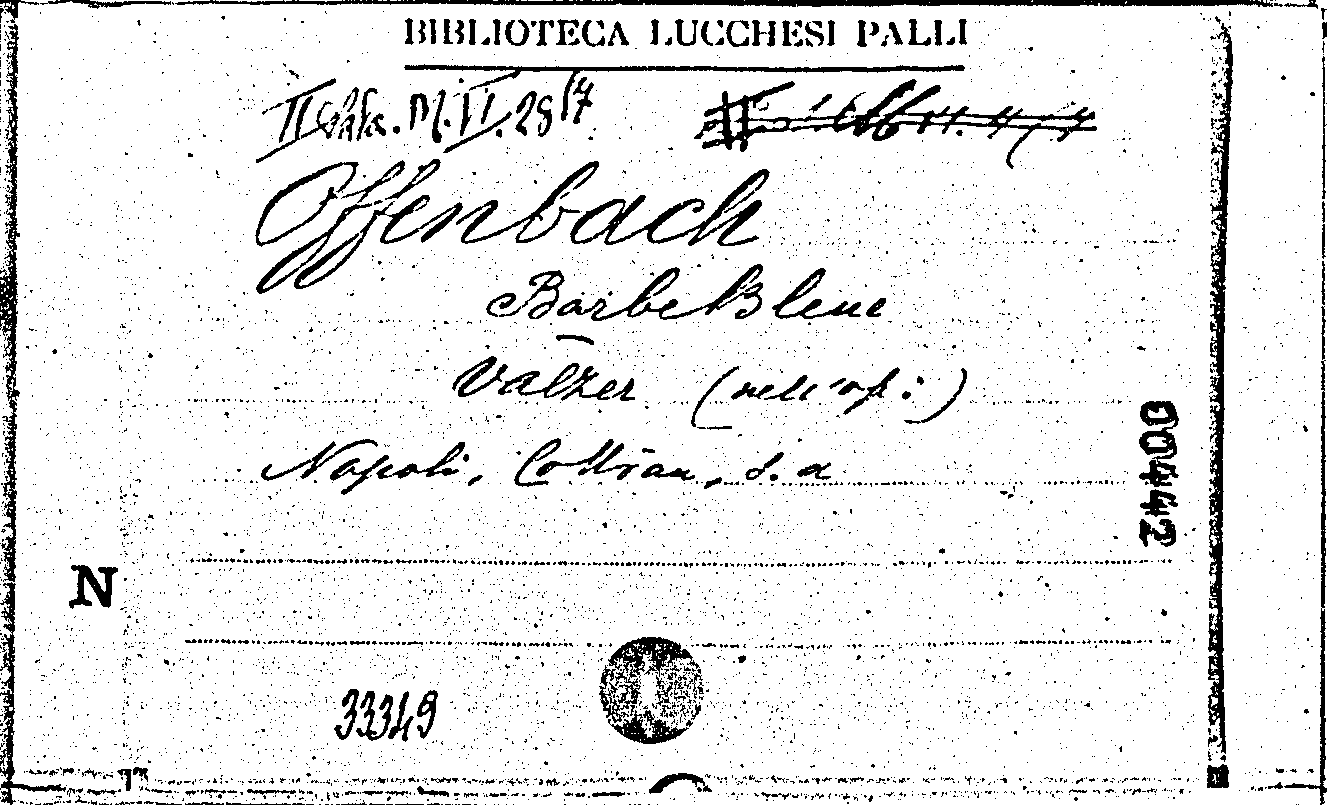 BIBLIOTECA LUCCHESI PALLI
II Sala. M. VI. 28 17
Offenbach
Barbe Bleue
Valzer (nell'op:)
Napoli, Cottrau, s. a
00442
N
33349